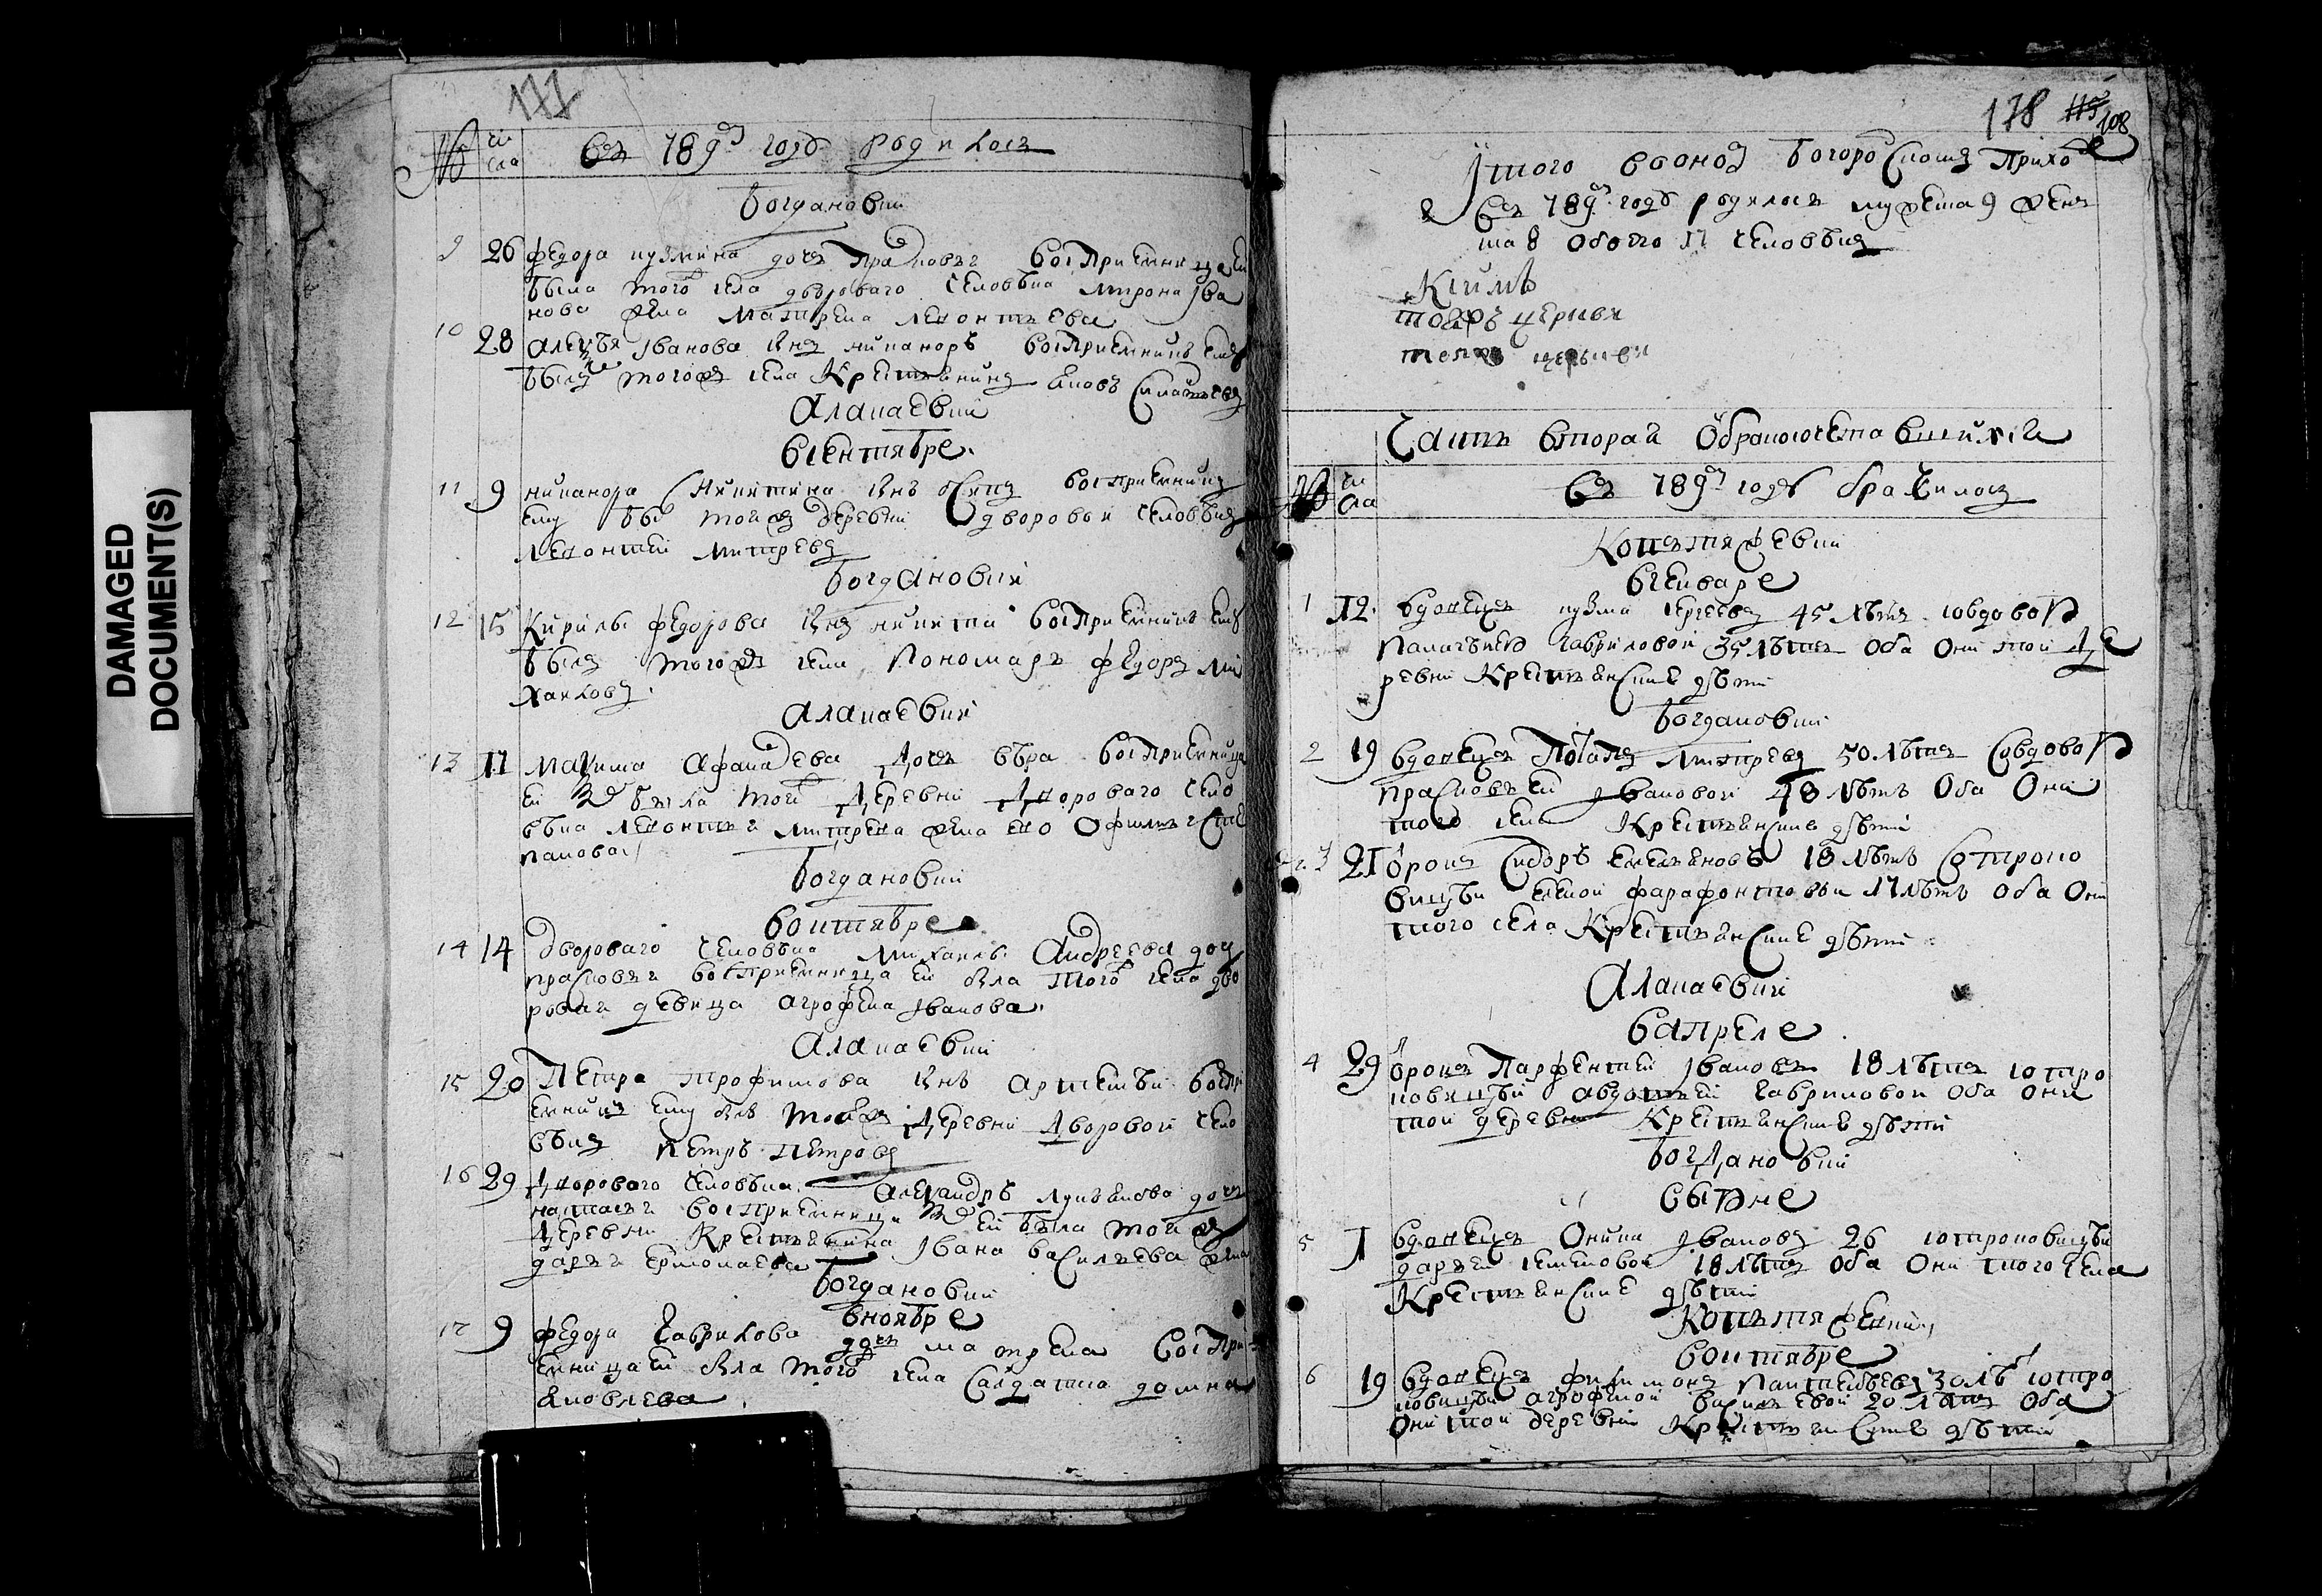 DAMAGED
DOCUMENT(S)
177
№ чи
сла
Въ 789м годѣ родилось
Богдановки
9 26 Федора Кузмина дочь Прасковья восприемница ей
была того села двороваго человѣка Мирона Ива
нова жена Матрена Леонтьева
10 28 Иванова снъ Никаноръ восприемникъ ему
былъ тогожъ села Крестьянинъ
Алакаевки
в сентябре
11 9 Никанора Никитина снъ Осипъ восприемникъ
ему бы тойже деревни дворовой человѣкъ
Леонтей Митревъ
Богдановки
12 15 Кирилы Федорова снъ Никита восприемникъ ему
былъ тогожъ села Пономарь Федоръ Ми
хаиловъ
Алакаевки
13 17 Максима Афанасева дочь вѣра восприемница
ей была той деревни двороваго чело
вѣка Леонтья Митрева жена ево Офимья Сте
панова
Богдановки
в октябре
14 14 двороваго человѣка Михаилы Андреева доч
прасковья восприемница ей была того села дво
ровая девица Агрофена Иванова
Алакаевки
15 20 Петра Трофимова снъ Артемѣи воспри
емникъ ему былъ тойже деревни дворовой чело
вѣкъ Петръ Петровъ
16 29 двороваго человѣка Александръ Лукьянова дочь
Настасья восприемница ей была тойже
деревни Крестьянина Ивана Василъева жена
дарья Ермолаева
Богдановки
в ноябре
17 9 Федора Гаврилова дочь Матрена воспри
емница ей была того села Салдатка домна
Яковлева
178 115 108
Итого в оной Богородской Приходе
въ 789м годѣ родилось мужеска 9 жен
ска 8 обоего 17 человѣкъ
Часть вторая О бракосочетавшихся
№ чи
сла
Въ 789м годѣ брачилось
в генваре
1 12 вдовецъ Кузма Сергеевъ 45 лѣтъ совдовою
Гавриловой 35 лѣтъ Оба Они той де
ревни Крестьянские дѣти
Богдановки
2 19 вдовецъ Потапъ Митревъ 50 лѣтъ Совдовою
прасковьей Ивановой 48 лѣтъ Оба Они
того села Крестьянские дѣти
3 21 Отрокъ Сидоръ Емельяновъ 18 лѣтъ Сотроко
вицѣи Еленой Фарафонтовой 17 лѣтъ Оба Они
того села Крестьянские дѣти
Алакаевки
в апреле
4 29 Отрокъ Парфентей Ивановъ 18 лѣтъ сотро
ковицѣи авдотьей Гавриловой Оба Они
той деревни Крестьянские дѣти
Богдановки
5 1 вдовецъ Оника Ивановъ 26 сотроковицѣи
дарьей Семеновой 18 лѣтъ Оба Они того села
Крестьянские дѣти
в октябре
6 19 вдовецъ Филимонъ Пантелѣевъ 30 лѣ сотро
ковицѣи агрофеной Васильевой 20 лѣтъ Оба
Они той деревни Крестьянские дѣти